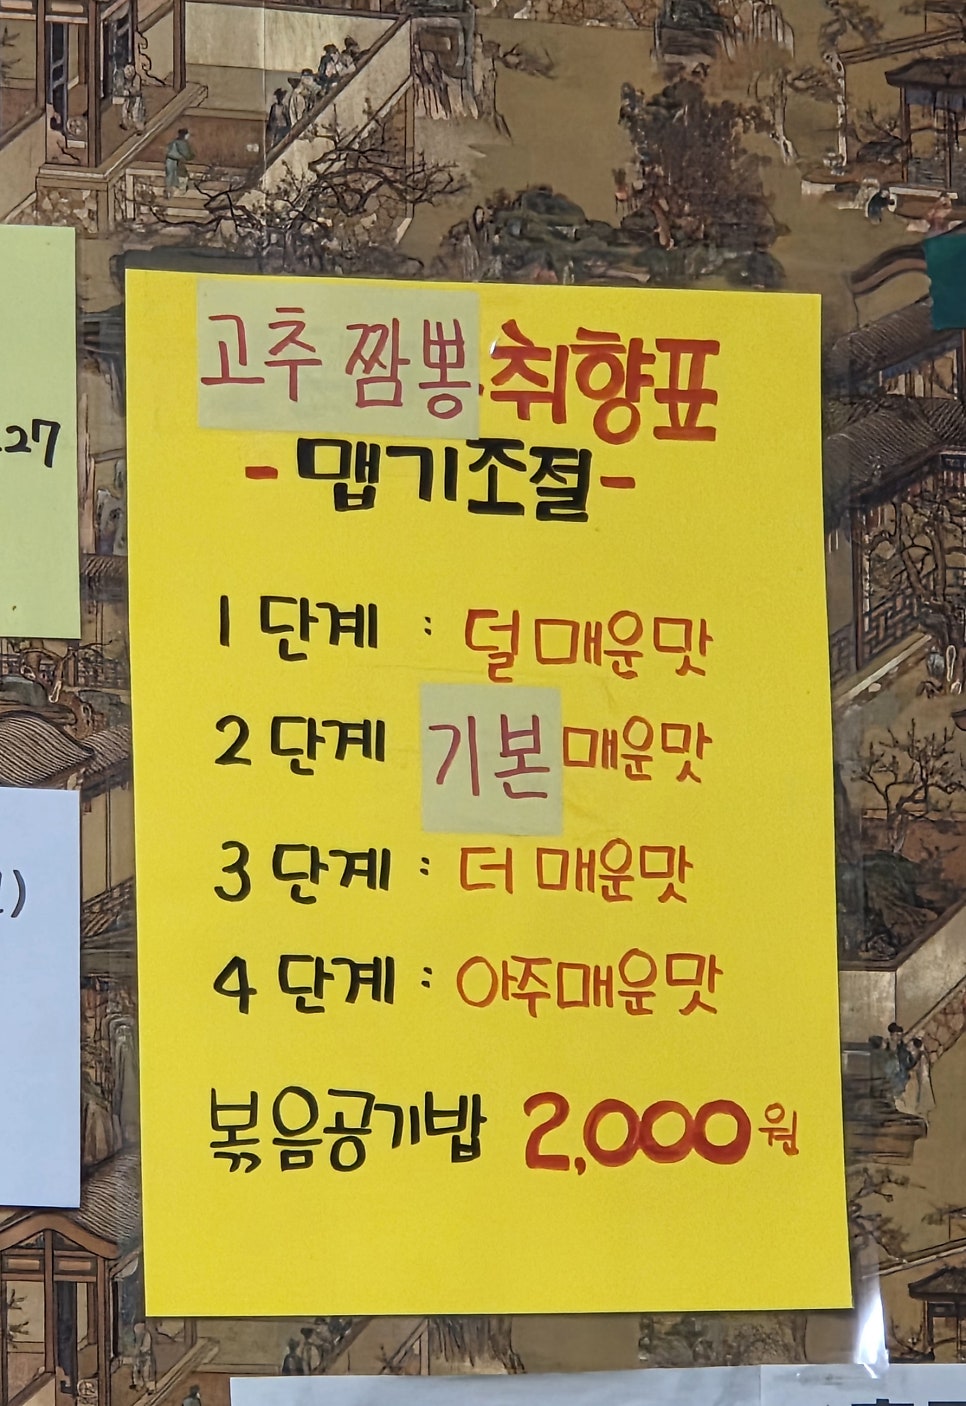 고추 짬뽕 취향표
- 맵기조절 -
1 단계 : 덜 매운맛
2 단계 기본 매운맛
3 단계 : 더 매운맛
4 단계 : 아주매운맛
볶음공기밥 2,000원
.27